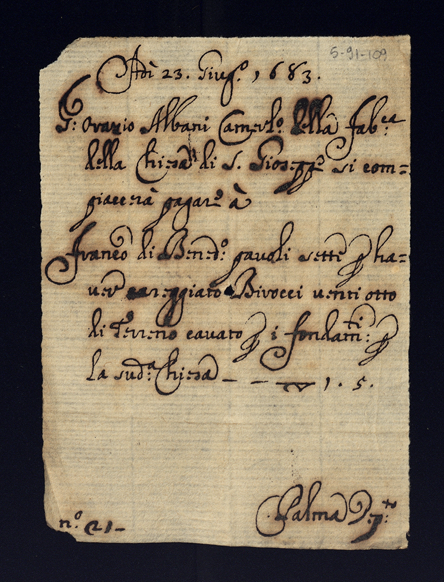 5-91-109
Adì 23. Giug.º 1683.
S.r Orazio Albani Camerl.º della Fab.ca
della Chiesa di S. Gioseppe si com=
piacerà pagare à
Franc.º di Bened.º pavoli sette p ha=
ver careggiato Birocci venti otto
di Terreno cavato p i fondam.ti p
la sud.a Chiesa — — — 1. 5.
Palma
n.º 21 —